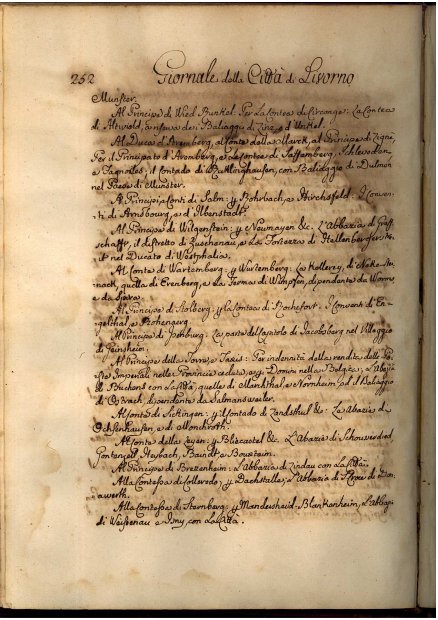 252 Giornale della Città di Livorno
Munster.
Al Principe di Wied Runkel: Per La Contea di La Contea
di Altwold, a riserva dei Baliaggi di Zinz, e d'Unkel.
Al Duca d'Aremberg, al Conte della Marck, al Principe di Ligne,
Per il Principato d'Aremberg, e Le Contee di Saffemberg, Schleyden
e Fagnoles, il Contado di Recklinghausen, con Baliaggio di Dulmen
nel Paese di Munster.
Ai Principi, e Conti di Salm: y Rohrbach, e Hirchsfeld. I Conven-
ti di Arnsbourg, e d'Ilbenstadt.
Al Principe di Witgenstein: y Neumayen &c. L'Abbazia di Graff
schafft, il distretto di Zuschenau, e La Fortezza di Hellenberg
nel Ducato di Westphalia.
Al Conte di Wartenberg: y Wartenberg. La Kellerey, di Neke-ste-
nach, quella di Erenberg, e La Fermas di Wimpfen, dipendente da Worms,
e da Spira.
Al Principe di Stolberg: y La Contea di Rochefort. I Conventi di En-
gelthal, e Rokenberg
Al Principe di Isenburg: La parte del Capitolo di Jacobsberg nel Villaggio
di Geinsheim.
Al Principe della Torre, e Taxis: Per indennità della rendita delle Po-
ste Imperiali nelle Provincie cedute, e y Domini nella Belgica; L'Abazia
di Buchons con La Città, quelle di Markthal, e Nernheim, ed il Baliaggio
di Ostrach, dipendente da Salmansweiler.
Al Conte di Sickingen: y il Contado di Landsthul &c. Le Abazie di
Ochsenhausen, e di Munchroth.
Al Conte della Leyen: y Bliecastel &c. L'Abazie di Schousseried
Gontenzell Heybach, Baindt, e Bouxheim.
Al Principe di Brezenheim: L'Abbazia di Lindau con La Città.
Alla Contessa di Colloredo: y Dachstulle; L'Abbazia di S. Croce di Don-
awerth.
Alla Contessa di Sternberg: y Manderscheid-Blankenheim, L'Abbazi
di Weissenau e Isny, con La Città.